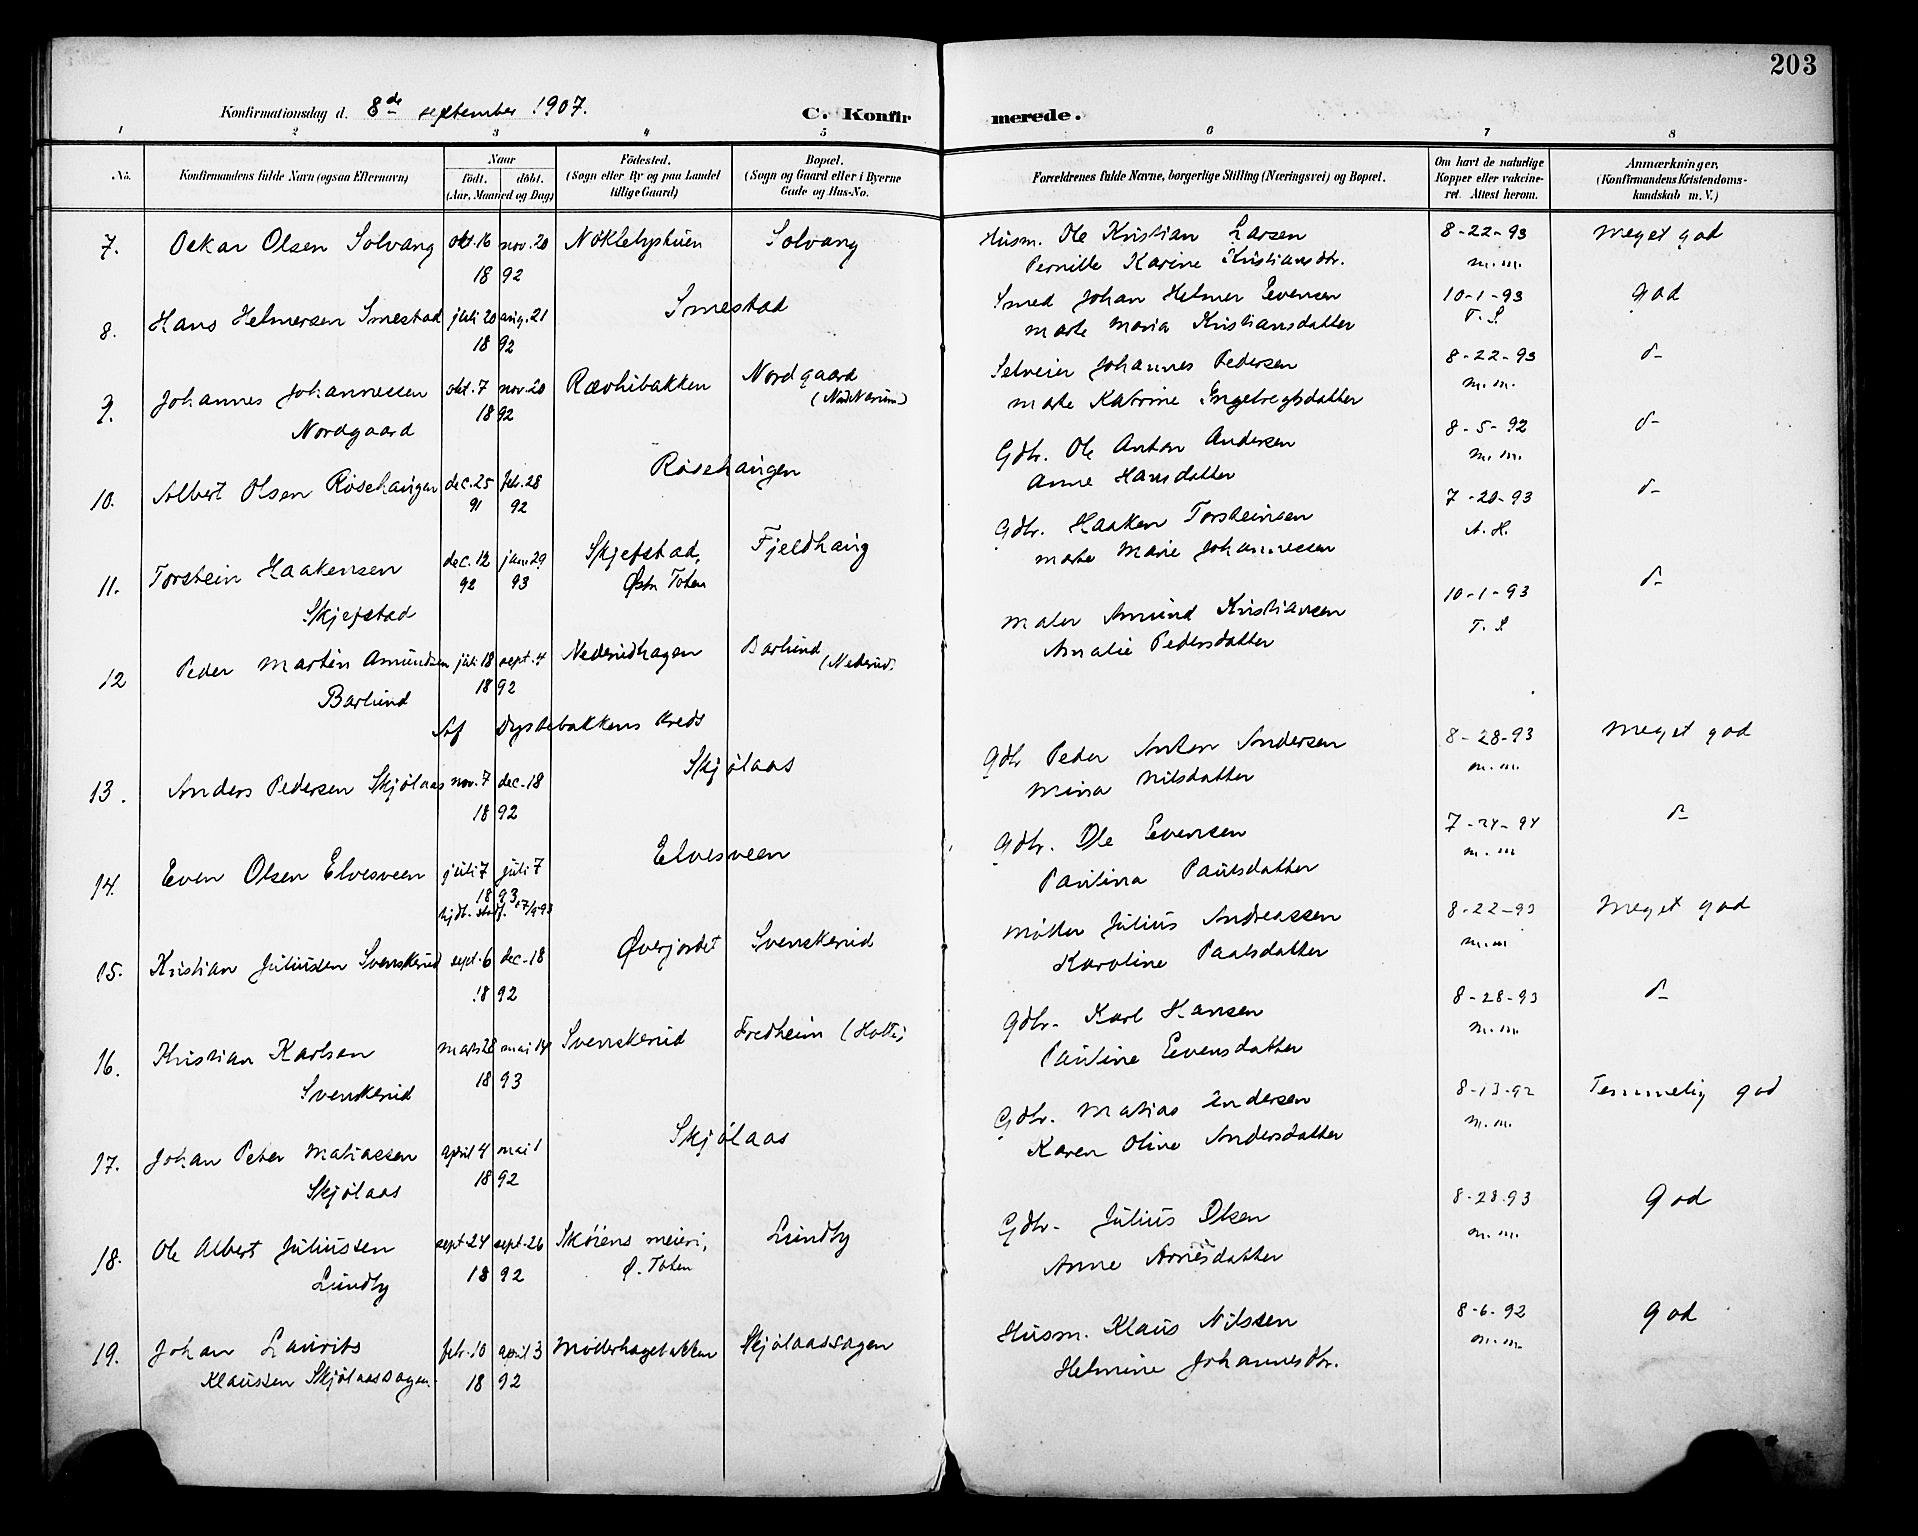 203
Konfirmationsdag d. 8de september 1907.
C. Konfirmerede.
1 2 3 4 5 6 7 8
No.
Konfirmandens fulde Navn (ogsaa Efternavn)
Naar
født. døbt.
(Aar, Maaned og Dag)
Fødested.
(Sogn eller By og paa Landet
tillige Gaard)
Bopæl.
(Sogn og Gaard eller i Byerne
Gade og Hus-No.
Forældrenes fulde Navne, borgerlige Stilling (Næringsvei) og Bopæl.
Om havt de naturlige
Kopper eller vakcine-
ret. Attest herom.
Anmærkninger,
(Konfirmandens Kristendoms-
kundskab m. V.)
7. Oskar Olsen Solvang okt. 16 nov. 20 Nøklebystuen Solvang Husm. Ole Kristian Larsen 8-22-93 Meget god
18 92 Pernille Karine Kristiansdtr. m. m.
8. Hans Helmersen Smestad juli 20 aug. 21 Smestad Smed Johan Helmer Evensen 10-1-93 God
18 92 Marte Maria Kristiansdatter T. S.
9. Johannes Johannessen okt. 7 nov. 20 Rævhibakken Nordgaard Selveier Johannes Pedersen 8-22-93 d-
Nordgaard 18 92 Marte Katrine Engebregtsdatter m. m.
10. Albert Olsen Røsehaugen dec. 25 feb. 28 Røsehaugen Gdbr. Ole Anton Andersen 8-5-92 d-
91 92 Anne Hansdatter m. m.
11. Torstein Haakensen dec. 12 jan. 29 Skjefstad, Fjeldhaug Gdbr. Haaken Torsteinsen 7-20-93 d-
Skjefstad 92 93 Østr. Toten Marte Marie Johannessen A. H.
12 Peder Martin Amundsen juli 18 sept. 4 Nederudhagen Barlund (Nederud) Maler Amund Kristiansen 10-1-93 d-
Barlund 18 92 Amalie Pedersdatter T. S
Af Dystebakkens kreds
13. Anders Pedersen Skjølaas nov. 7 dec. 18 Skjølaas Gdbr Peder Anton Andersen 8-28-93 Meget god
18 92 Mina Nilsdatter m. m.
14. Even Olsen Elvesveen juli 7 juli 7 Elvesveen Gdbr. Ole Evensen 7-24-94 d-
18 93 Paulina Paulsdatter m. m
hjdb. stadf.
15. Kristian Juliussen Svenskerud sept. 6 dec. 18 Øverjordet Svenskerud Møller Julius Andreassen 8-22-93 Meget god
18 92 Karoline Paalsdatter m. m
16. Kristian Karlsen marts 28 mai 14 Svenskerud Fredheim (Hotte) Gdbr. Karl Hansen 8-28-93 d-
Svenskerud 18 93 Pauline Evensdatter m. m.
17. Johan Peter Matiassen april 4 mai 1 Skjølaas Gdbr. Matias Andersen 8-13-92 Temmelig god
Skjølaas 18 92 Karen Oline Andersdatter m. m.
18. Ole Albert Juliussen sept. 24 sept. 26 Skøiens meieri, Lundby Gdbr. Julius Olsen 8-28-93 God
Lundby 18 92 Ø. Toten Anne Arnesdatter m. m.
19. Johan Laurits feb. 10 april 3 Møderhagebakken Skjølaassagen Husm. Klaus Nilssen 8-6-92 God
Klaussen Skjølaassagen. 18 92 Helmine Johannesdtr. m. m.